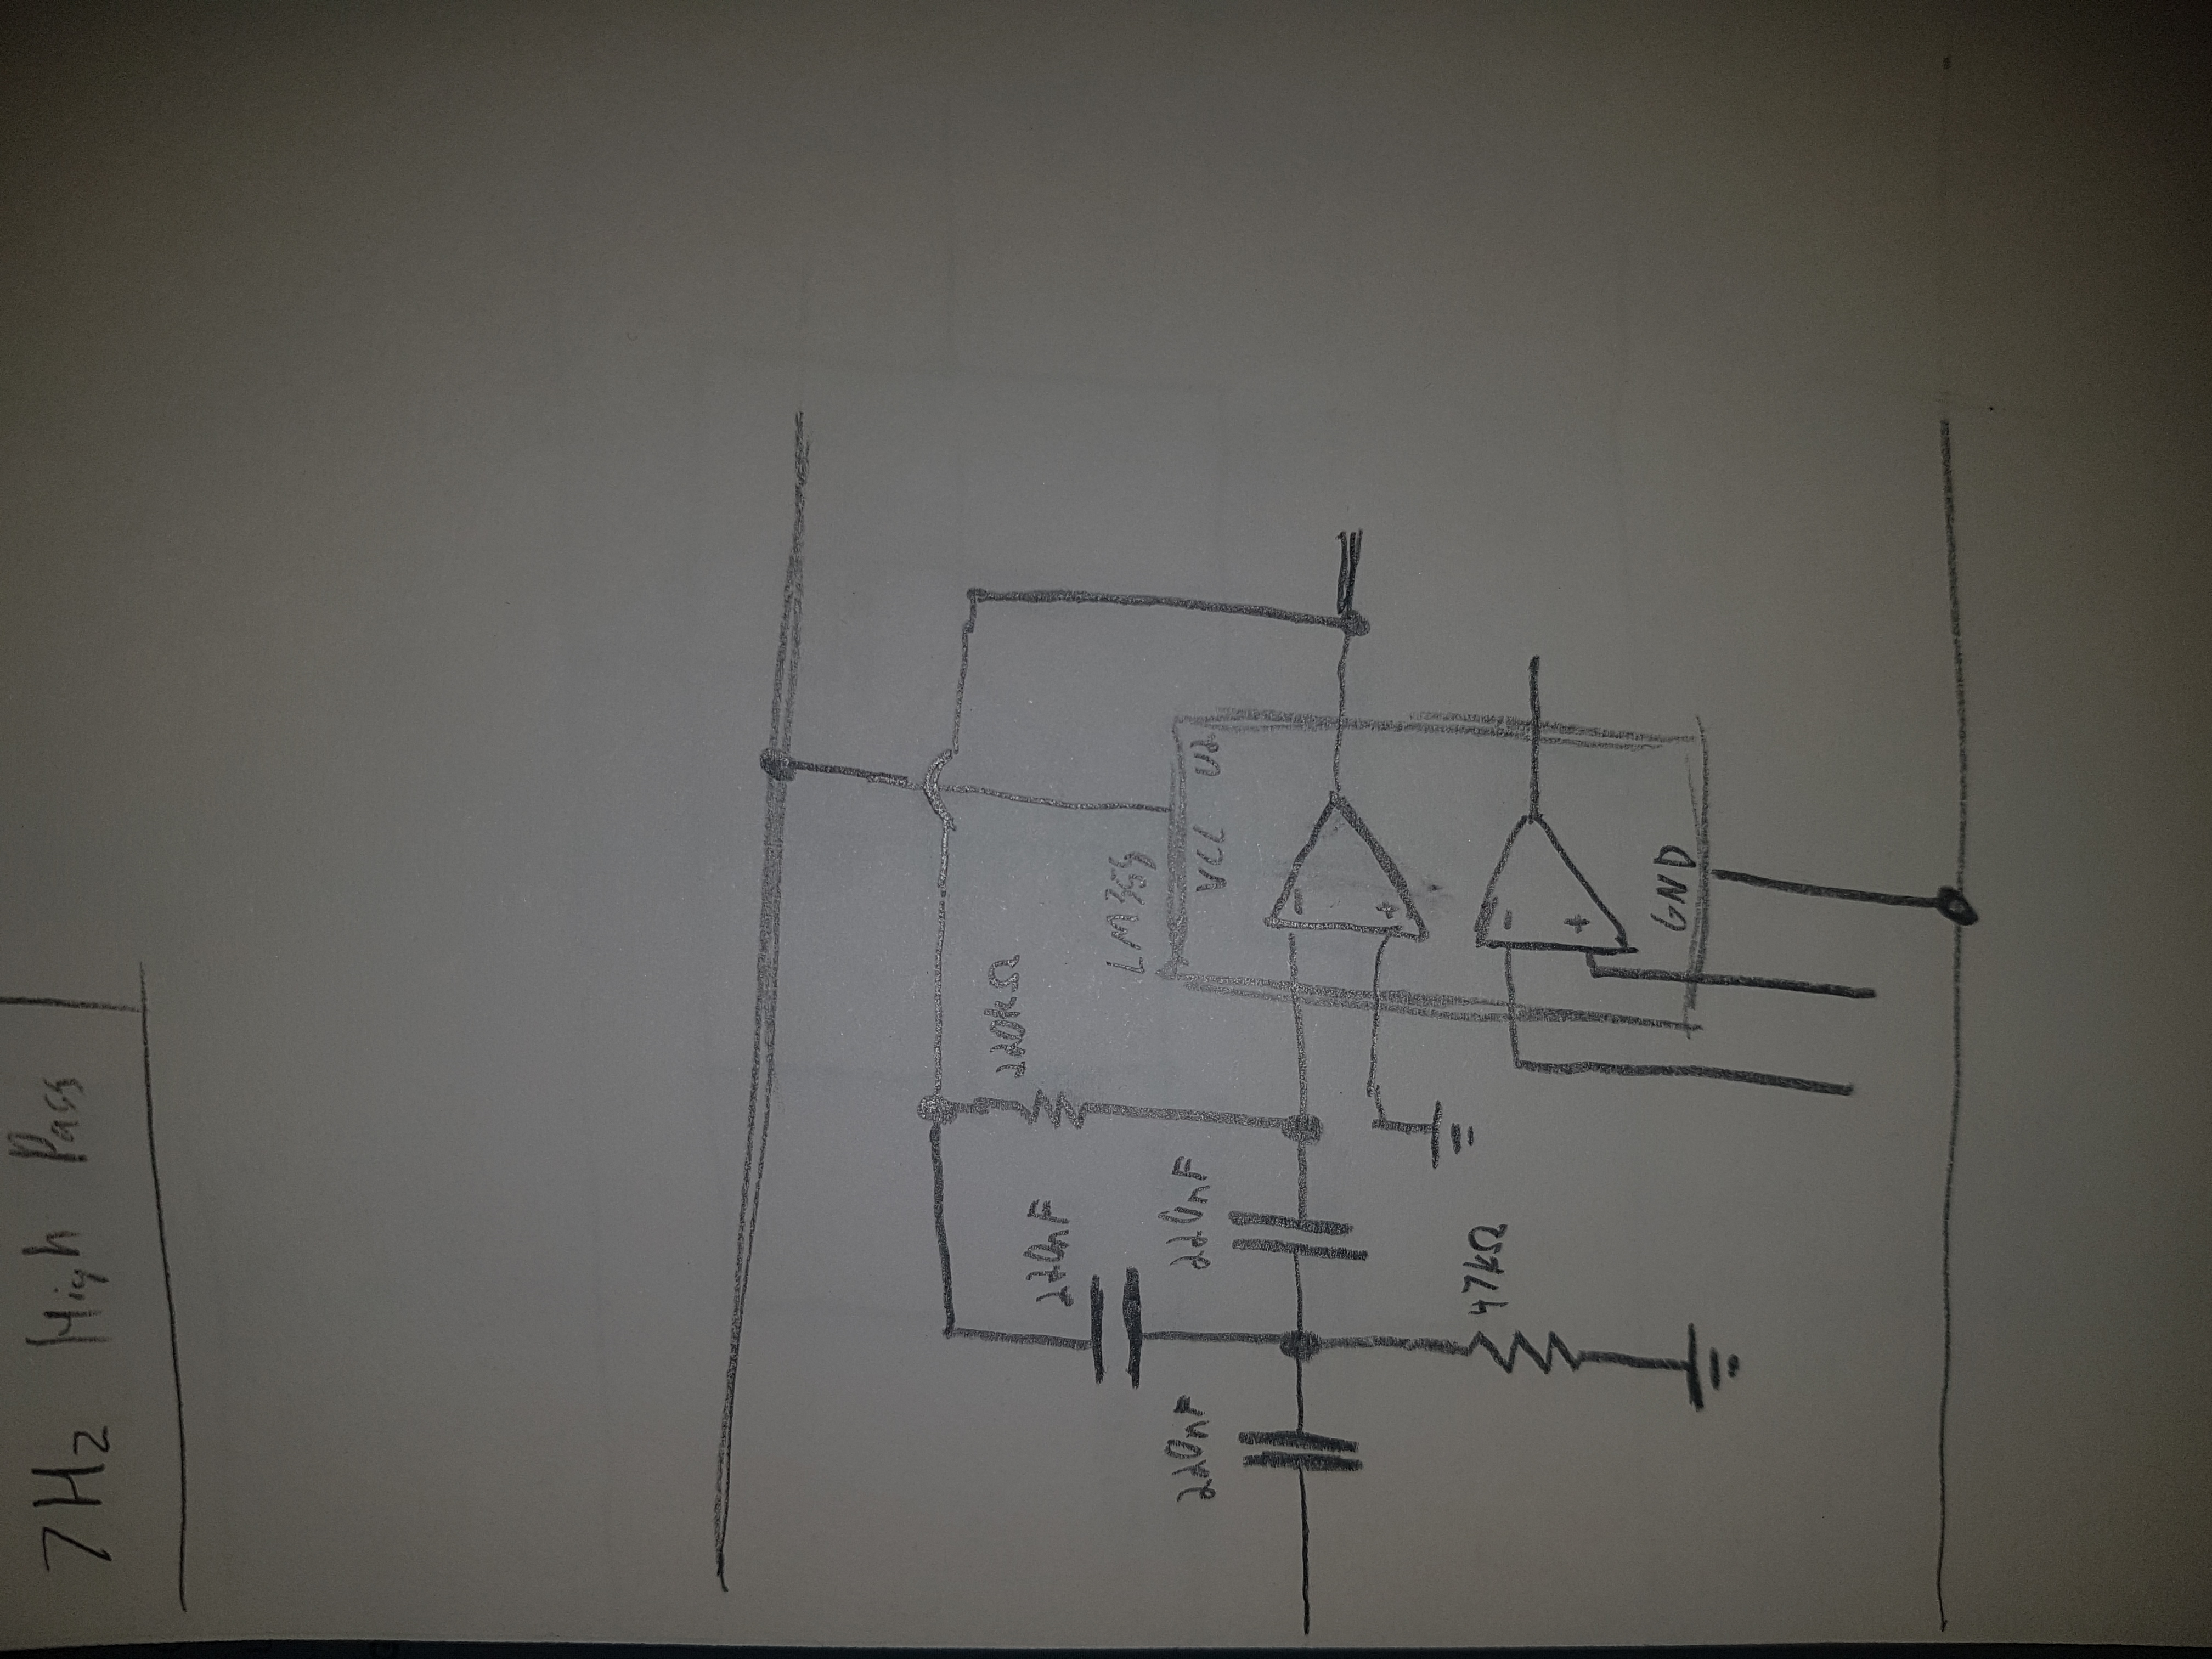 7Hz High Pass
220kΩ
220nF
LM358
220nF 220nF
VCC U2
-
+
47kΩ
-
+
GND